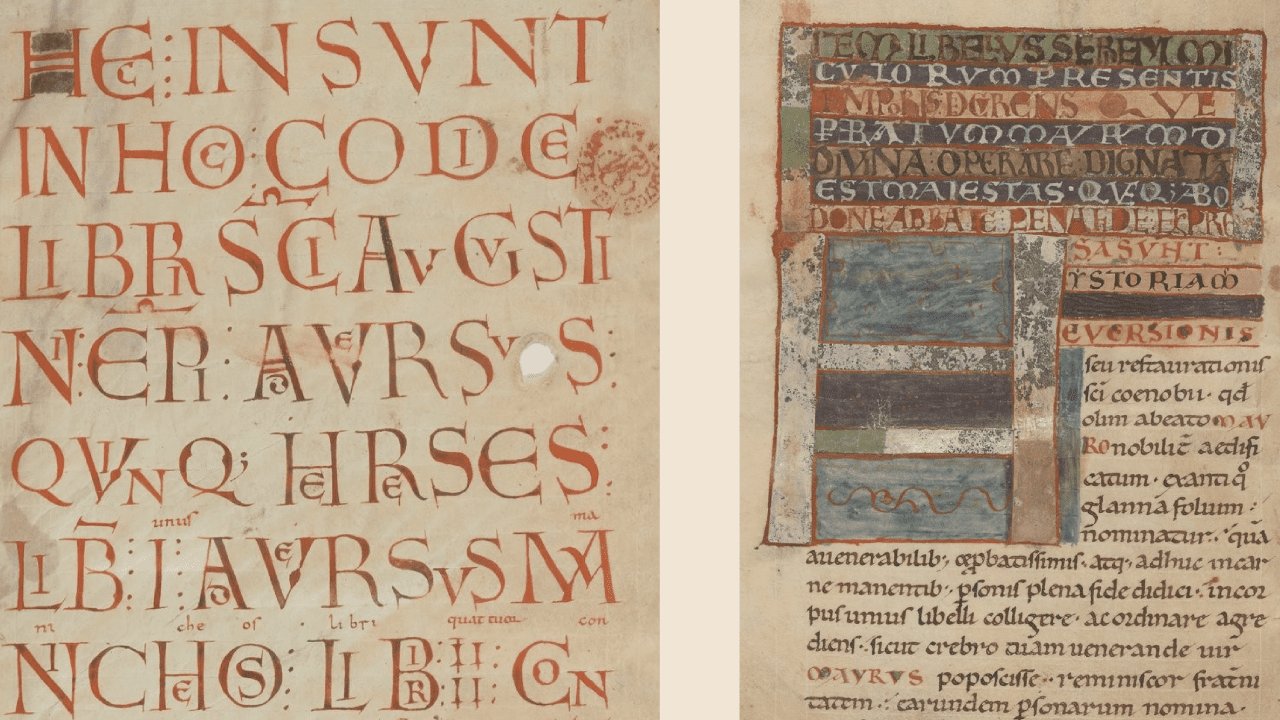 HEC: IN SVNT
IN HOC CODICE
LIBRI SCI AVGVSTI
NI: EPI: ADVERSVS:
QVINQ; HERESES:
unus ma
LIB: I: ADVERSVS MA
ni che os libri quattuor con
NICHEOS: LIBRI: IIII: CON
ITEM LIBELLVS
CVLORVM PRESENTIS
QVE
MAVRVM DI
DIVINA OPERARE DIGNATA
EST MAIESTAS · QVEQ; ABO
DONE ABBATE
SA SVNT:
YSTORIAM
EVERSIONIS
seu restaurationis
sci coenobii · qd
olim a beato MAV
RO nobilit aedifi
catum · ex antiqo
glanna folium ·
nominatur · qua
a uenerabilib; & pbatissimis · atq; adhuc in car
ne manentib · psonis plena fide didici · in cor
pus unius libelli colligere · ac ordinare agre
diens · sicut crebro tuam uenerande uir
MAVRVS poposcisse · reminiscor fratni
tatem · earundem psonarum nomina ·